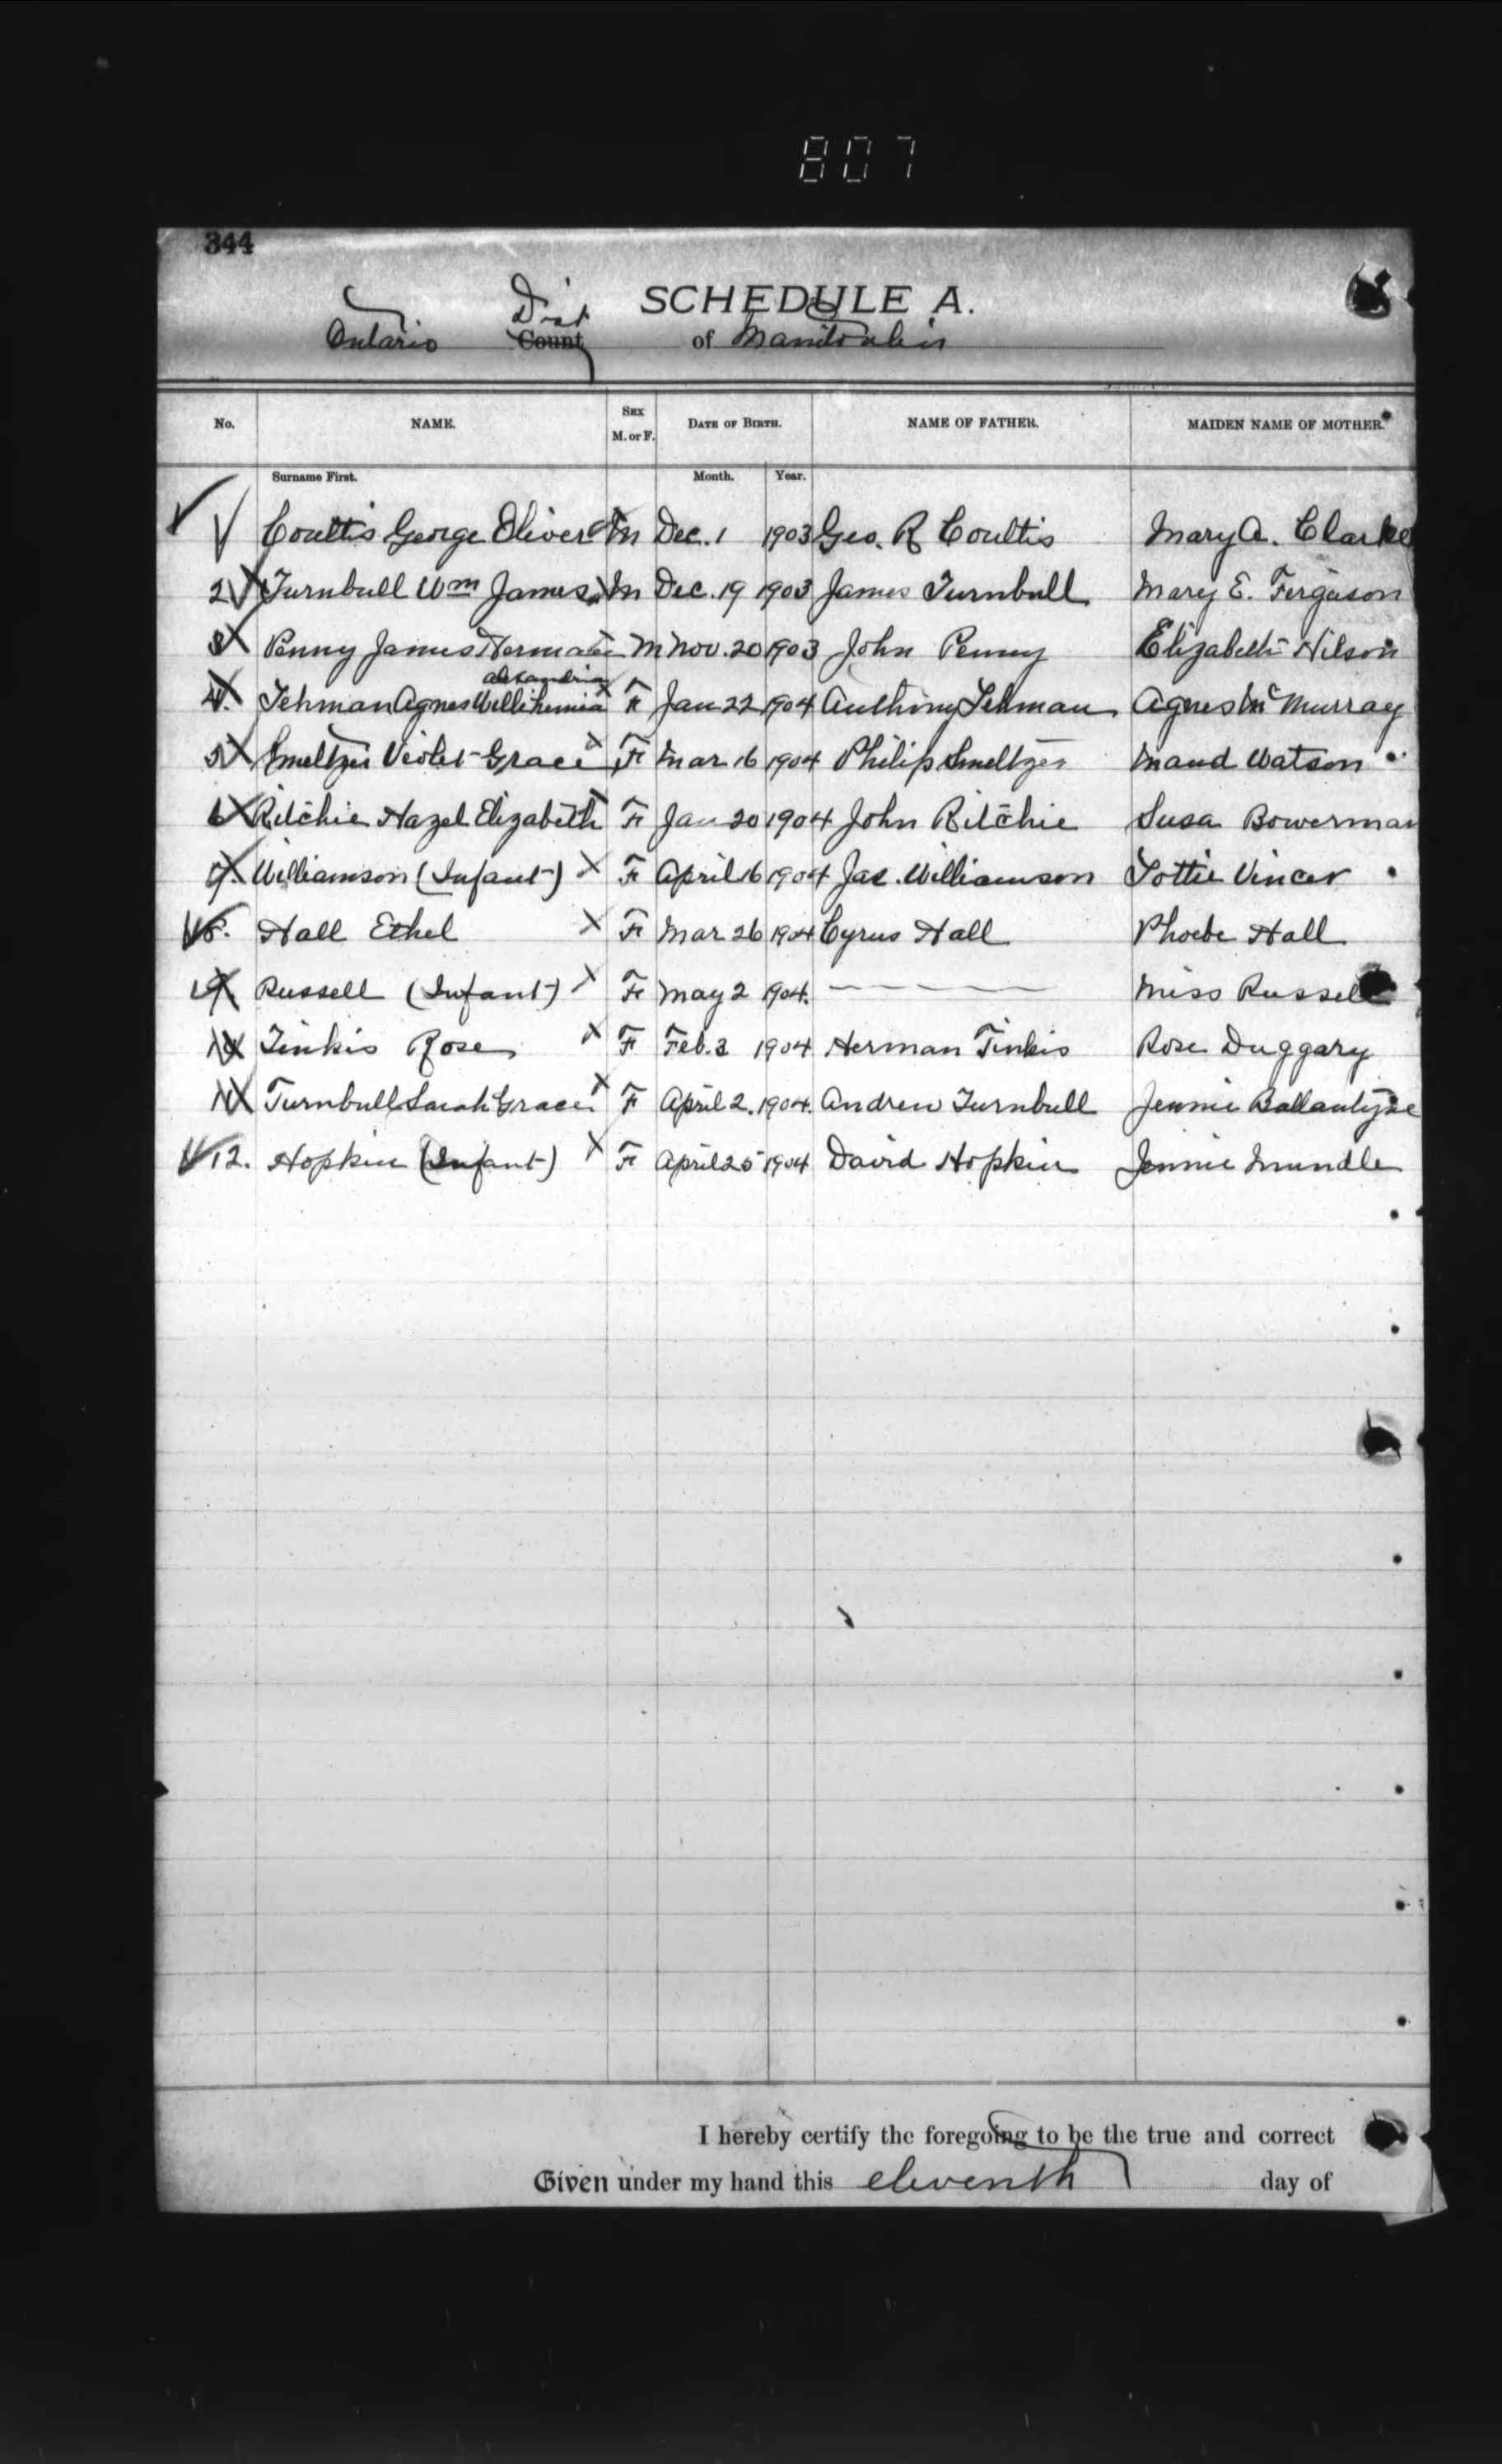 807
344
SCHEDULE A.
Ontario Dist County of Manitoulin
No. NAME. SEX M. or F. DATE OF BIRTH. NAME OF FATHER. MAIDEN NAME OF MOTHER.
Surname First. Month. Year.
Coultis George Oliver M Dec. 1 1903 Geo. R Coultis Mary A. Clarke
2 Turnbull Wm James M Dec. 19 1903 James Turnbull Mary E. Ferguson
3 Penny James Herman M Nov. 20 1903 John Penny Elizabeth Hilson
Alexandria
4. Tehman Agnes Willihemia F Jan 22 1904 Anthony Tehman Agnes McMurray
5 Smeltzer Violet Grace F Mar 16 1904 Philip Smeltzer Maud Watson
6 Ritchie Hazel Elizabeth F Jan 20 1904 John Ritchie Susa Bowerman
7. Williamson (Infant) F April 16 1904 Jas. Williamson Tottie Vincer
8. Hall Ethel F Mar 26 1904 Cyrus Hall Phoebe Hall
9. Russell (Infant) F May 2 1904. Miss Russell
10 Tinkis Rose F Feb. 3 1904 Herman Tinkis Rose Duggary
11 Turnbull Sarah Grace F April 2. 1904. Andrew Turnbull Jennie Ballantyne
12. Hopkin (Infant) F April 25 1904 David Hopkin Jennie Mundle
I hereby certify the foregoing to be the true and correct
Given under my hand this eleventh day of